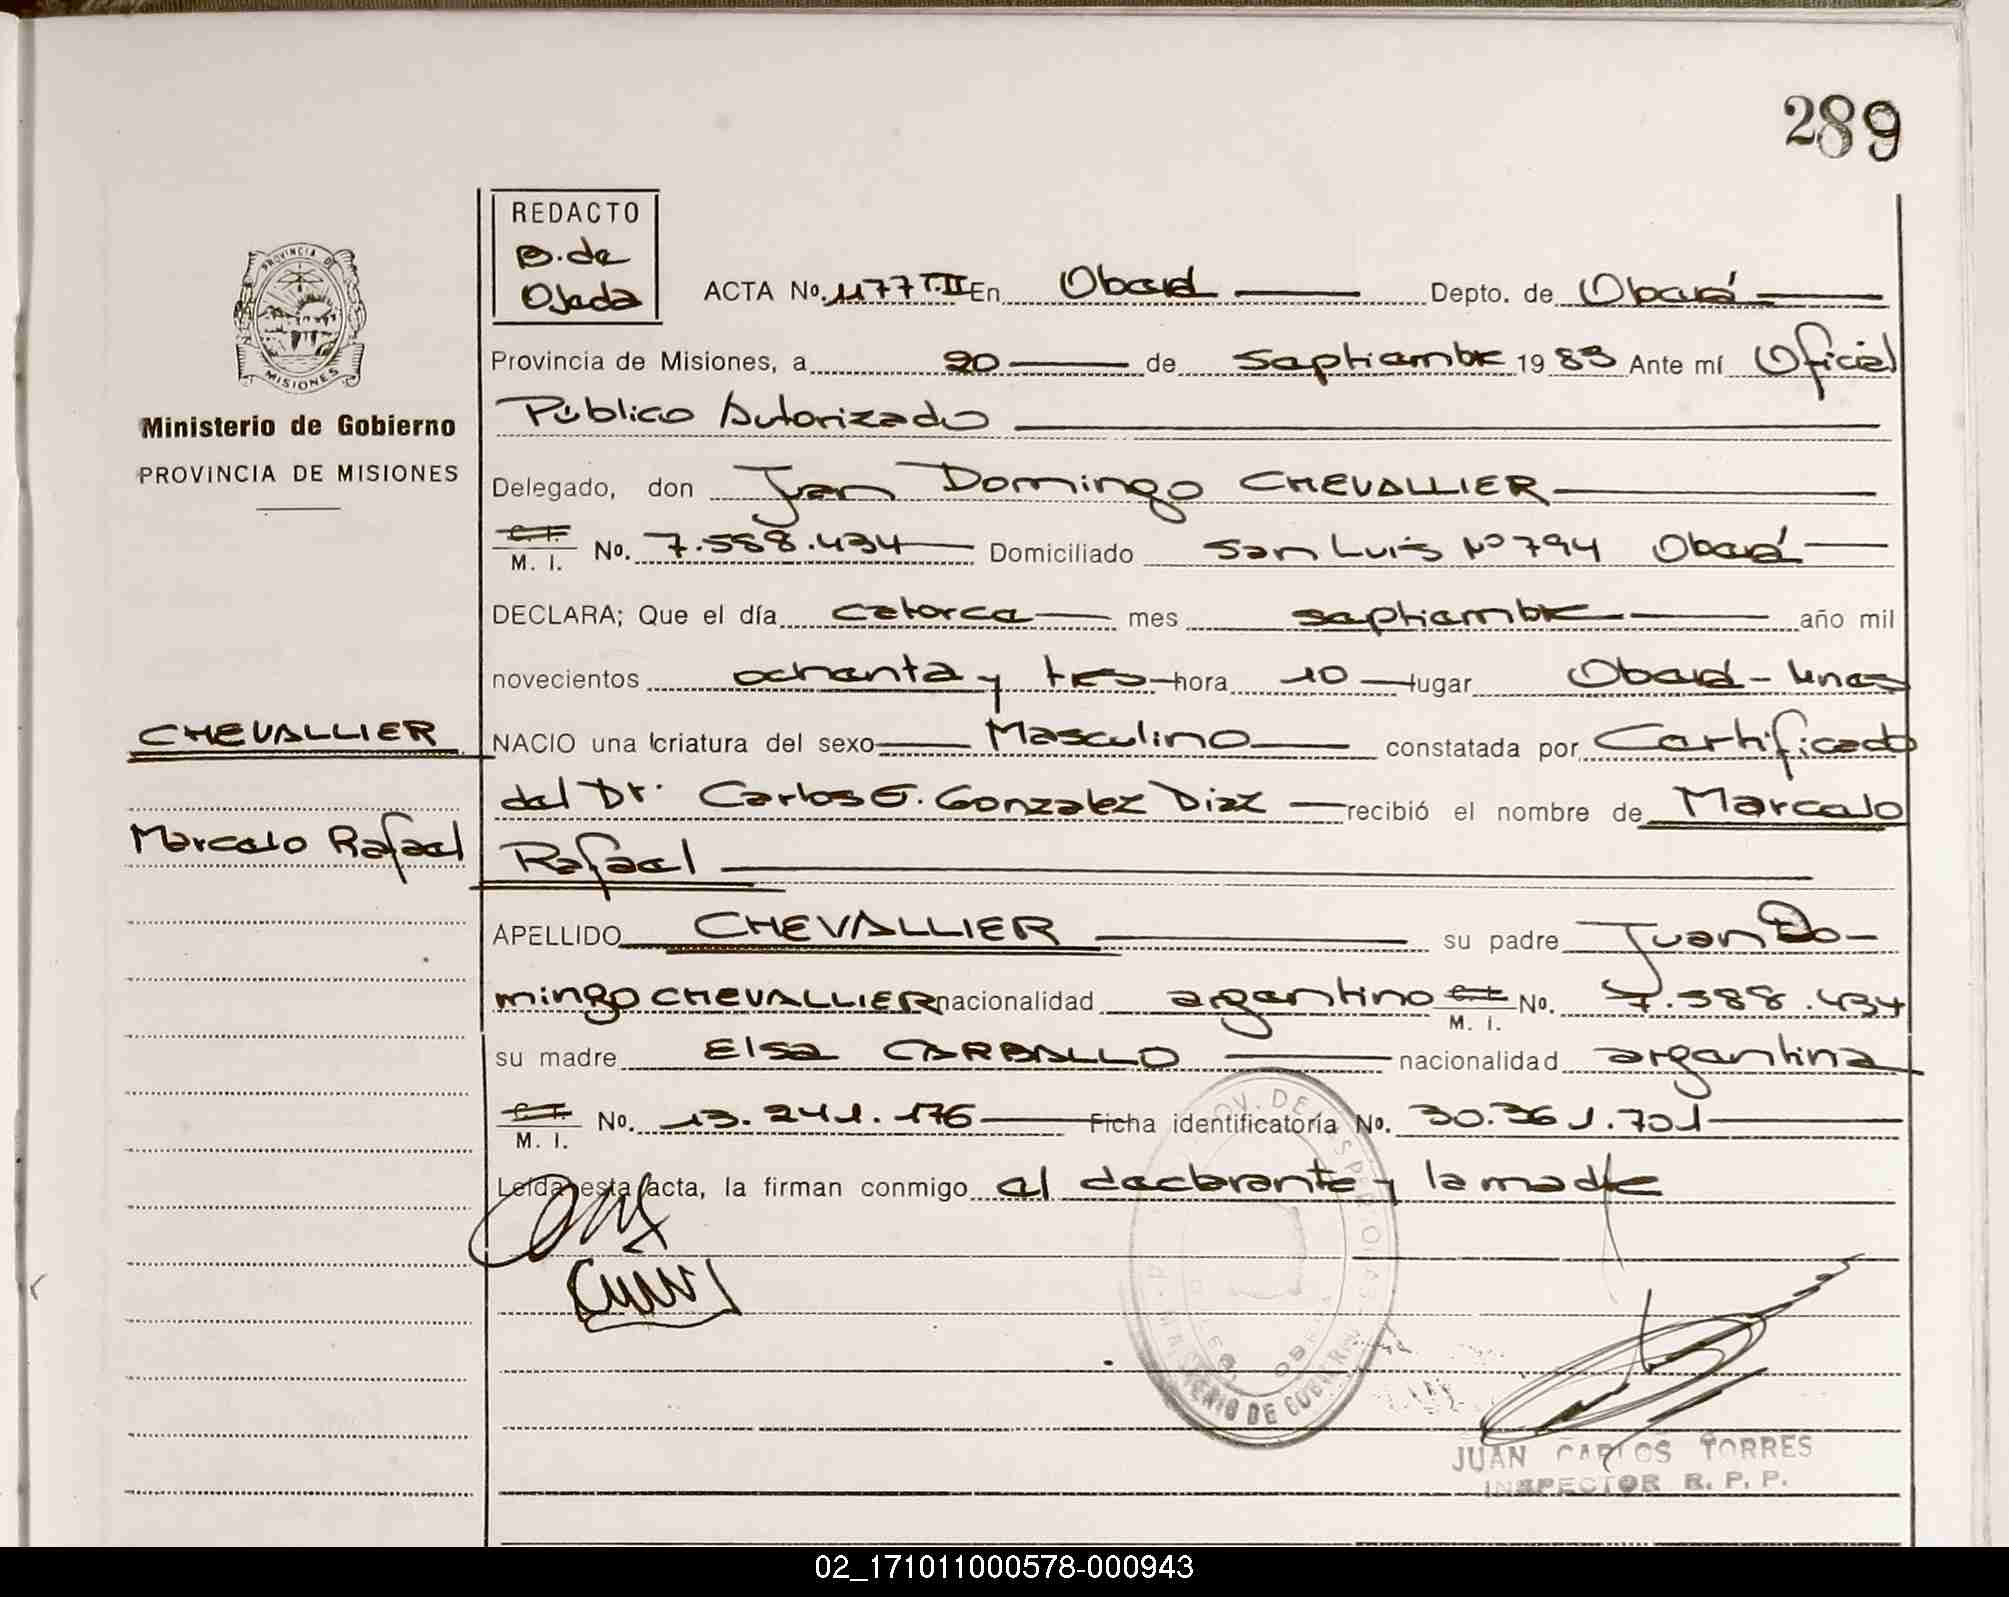 289
REDACTO
B. de
Ojeda
PROVINCIA DE
MISIONES
Ministerio de Gobierno
PROVINCIA DE MISIONES
ACTA No. 1177 T.II En Oberá Depto. de Oberá
Provincia de Misiones, a 20 de septiembre 1983 Ante mí Oficial
Público Autorizado
Delegado, don Juan Domingo CHEVALLIER
C. I.
M. I. No. 7.588.434 Domiciliado San Luis Nº 794 Oberá
DECLARA; Que el día catorce mes septiembre año mil
novecientos ochenta y tres hora 10 lugar Oberá - Mnes
CHEVALLIER
NACIO una criatura del sexo Masculino constatada por Certificado
del Dr. Carlos E. Gonzalez Diaz recibió el nombre de Marcelo
Marcelo Rafael
Rafael
APELLIDO CHEVALLIER su padre Juan Do-
mingo CHEVALLIER nacionalidad argentino C. I.
M. I. No. 7.588.434
su madre Elsa CARBALLO nacionalidad argentina
C. I.
M. I. No. 13.241.176 Ficha identificatoria No. 30.361.701
Leída esta acta, la firman conmigo el declarante y la madre
JUAN CARLOS TORRES
INSPECTOR R. P. P.
02_171011000578-000943